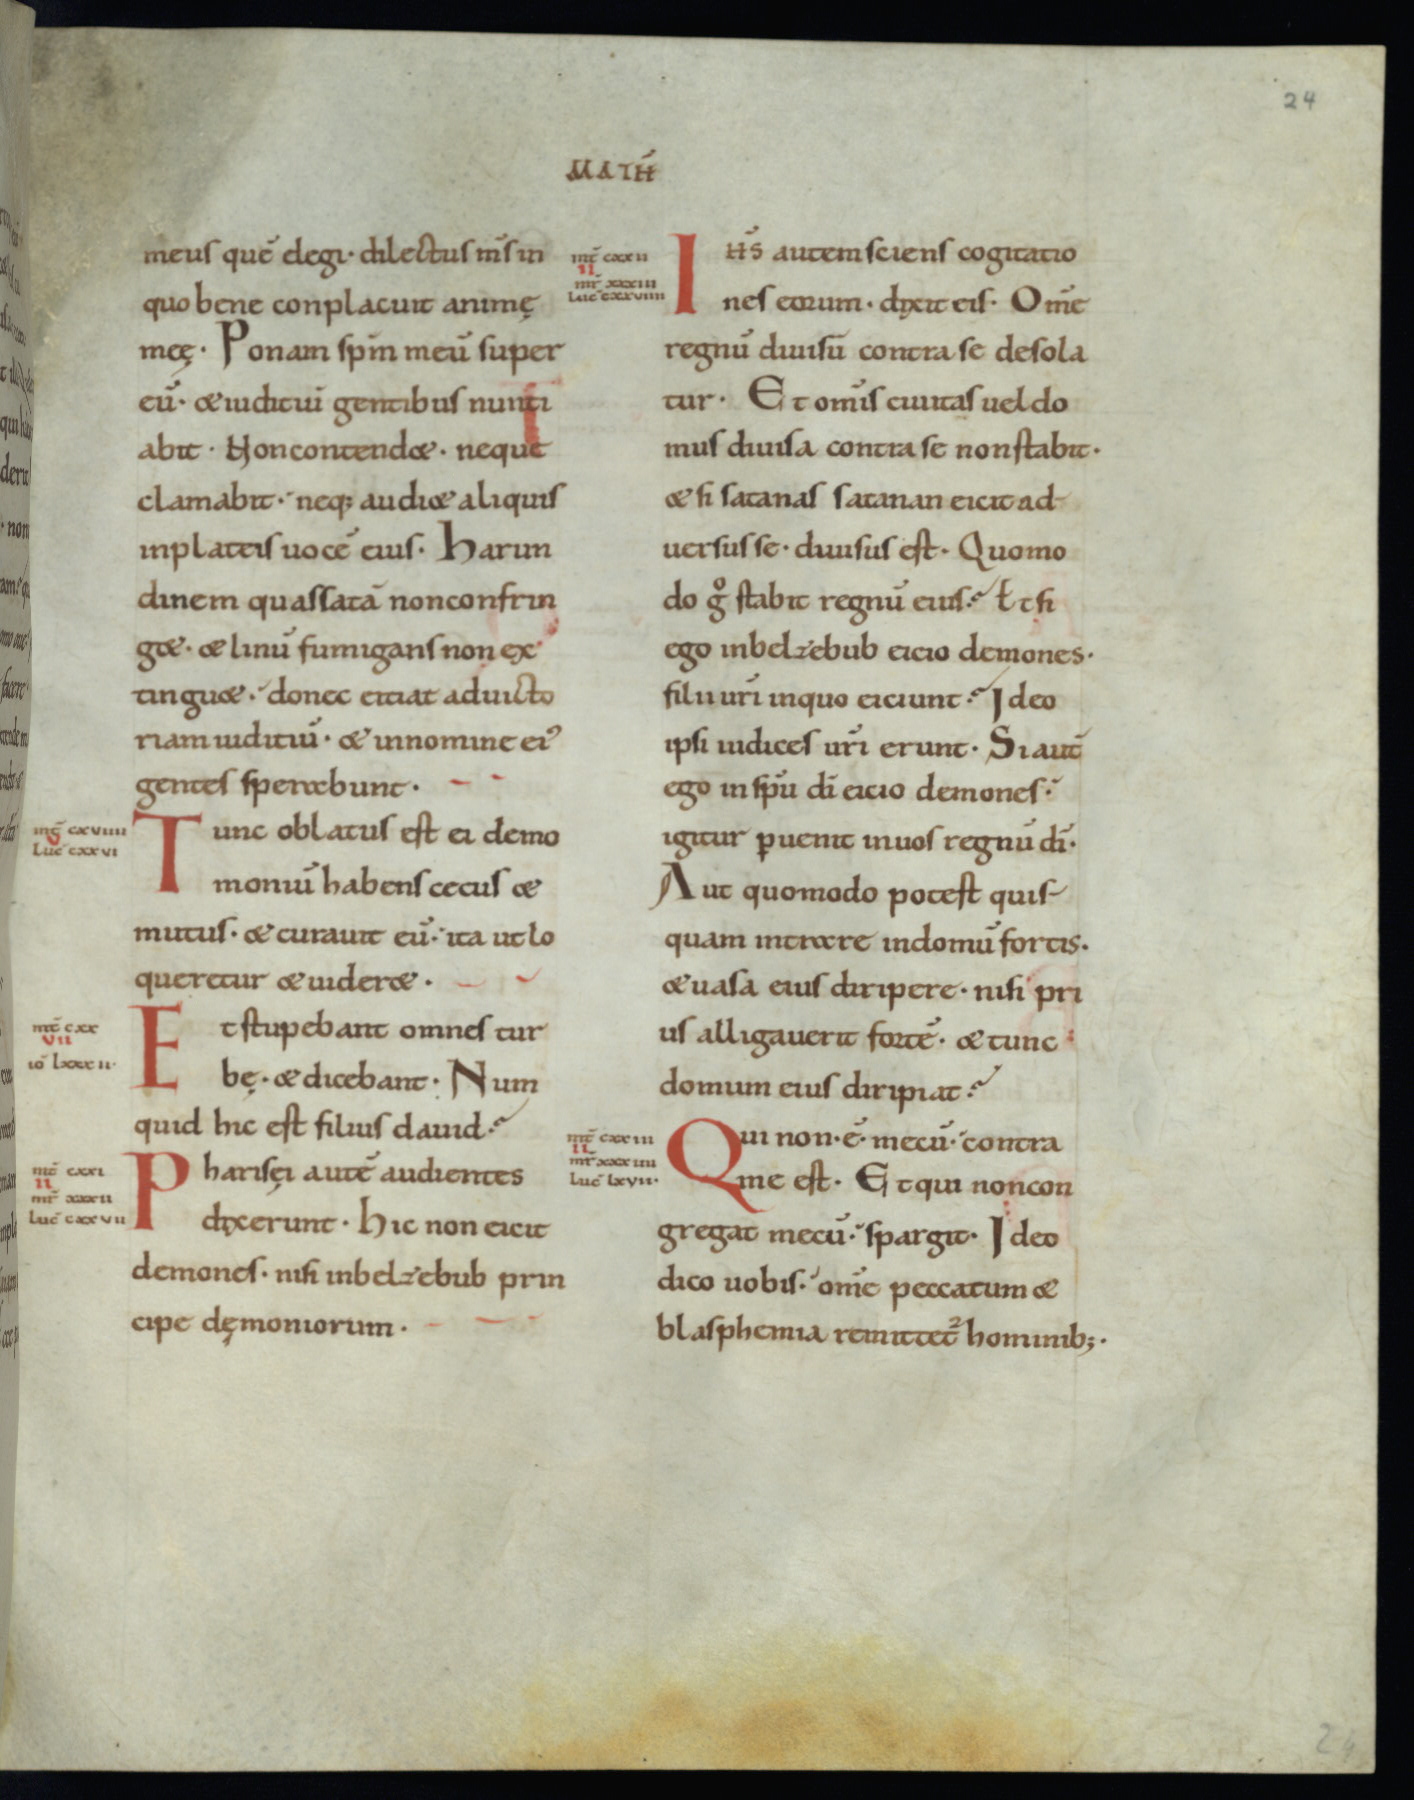 24
MATH̄
meus quē elegi · dilectus m̄s in
quo bene conplacuit animę
meę · Ponam sp̄m meū super
eū · & iuditiū gentibus nunti
abit · Non contend& · neque
clamabit · neq; audi& aliquis
in plateis uocē eius · harun
dinem quassatā non confrin
g& · & linū fumigans non ex
tingu& · donec eiciat ad uicto
riam iuditiū · & in nomine ei᾽
gentes sperabunt ·
mt̄ cxviiii
v
Luc̄ cxxvi
Tunc oblatus est ei demo
moniū habens cecus &
mutus · & curauit eū · ita ut lo
queretur & uider& ·
mt̄ cxx
vii
io̅ lxxxii ·
Et stupebant omnes tur
bę · & dicebant · Num
quid hic est filius dauid ·
mt̄ cxxi
ii
mr̄ xxxii
Luc̄ cxxvii
Pharisęi autē audientes
dixerunt · hic non eicit
demones · nisi in belzebub prin
cipe dęmoniorum ·
mt̄ cxxii
ii
mr̄ xxxiii
Luc̄ cxxviiii
IHS̄ autem sciens cogitatio
nes eorum · dixit eis · Om̄e
regnū diuisū contra se desola
tur · Et om̄is ciuitas uel do
mus diuisa contra se non stabit ·
& si satanas satanan eicit ad
uersus se · diuisus est · Quomo
do gͦ stabit regnū eius · Et si
ego in belzebub eicio demones ·
filii ur̄i in quo eiciunt · Ideo
ipsi iudices ur̄i erunt · Si aut̄
ego in sp̄u dī eicio demones ·
igitur ꝑuenit in uos regnū dī ·
Aut quomodo potest quis
quam intrare in domū fortis ·
& uasa eius diripere · nisi pri
us alligauerit fortē · & tunc
domum eius diripiat ·
mt̄ cxxiii
ii
mr̄ xxxiiii
Luc̄ lxvii ·
Qui non · ē · mecū · contra
me est · Et qui non con
gregat mecū · spargit · Ideo
dico uobis · om̄e peccatum &
blasphemia remittet᷑ hominib; ·
24